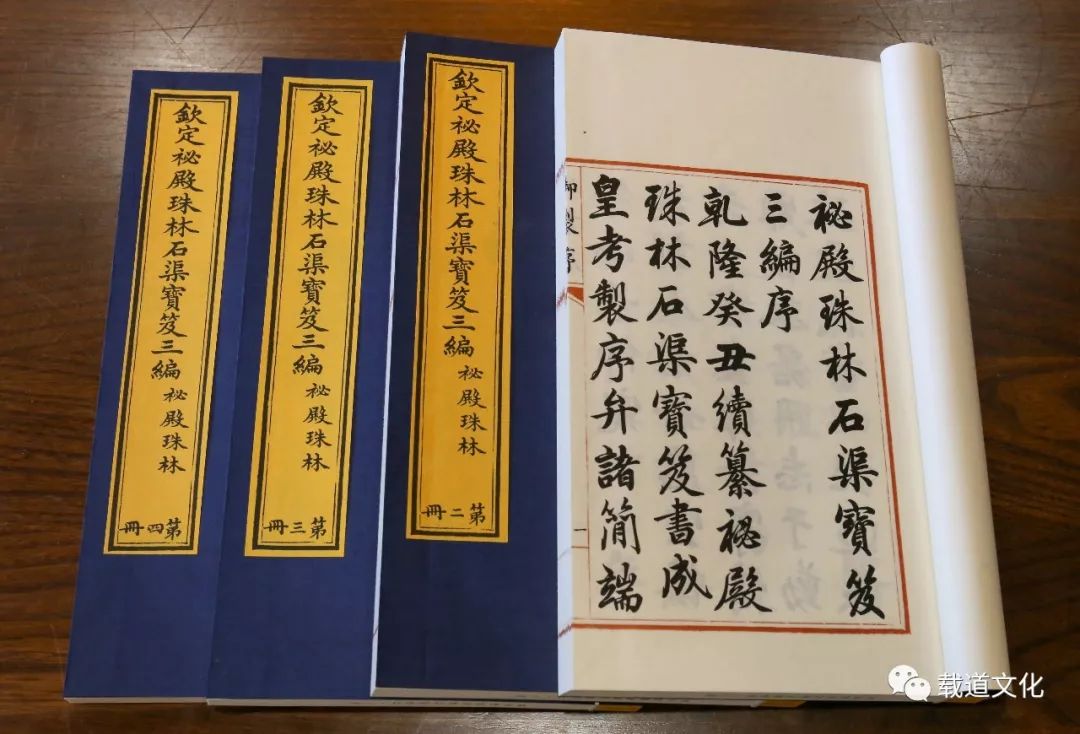 祕殿珠林石渠寶笈
三編序
乾隆癸丑續纂祕殿
珠林石渠寶笈書成
皇考製序弁諸簡端
御製序
一
欽定祕殿珠林石渠寶笈三編 祕殿珠林
第二冊
欽定祕殿珠林石渠寶笈三編 祕殿珠林
第三冊
欽定祕殿珠林石渠寶笈三編 祕殿珠林
第四冊
载道文化